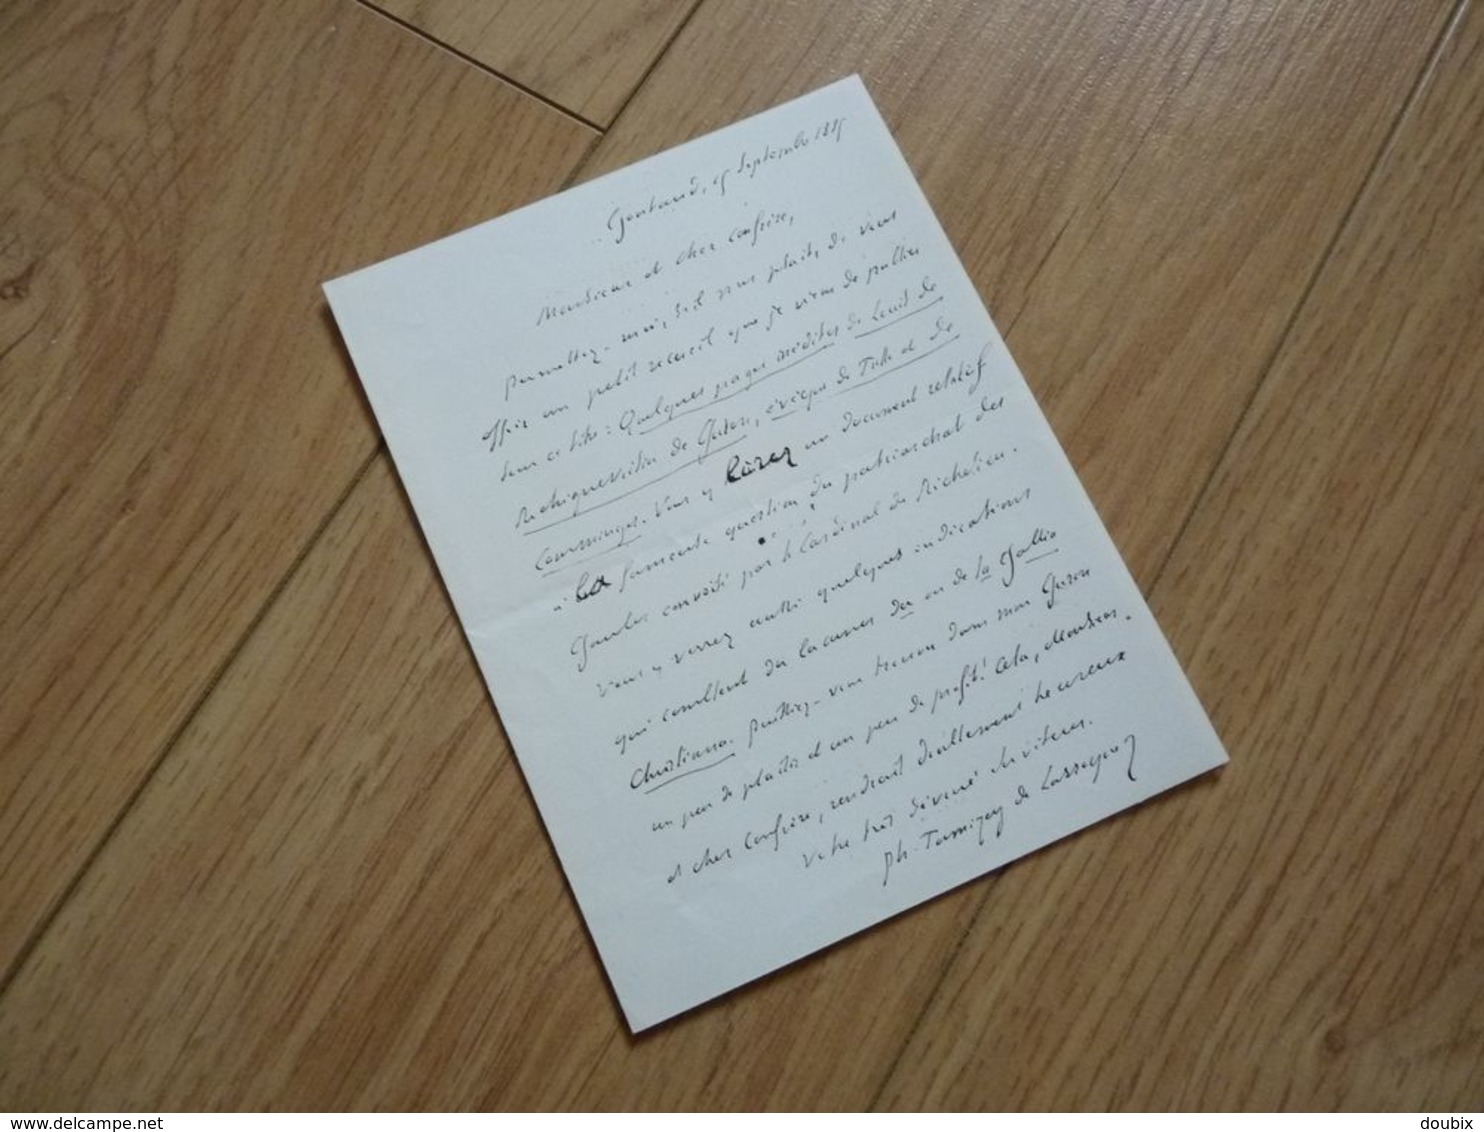 Gontaud, 15 Septembre 1885
Monsieur et cher confrère,
Permettez-moi, s'il vous plait, de vous
offrir un petit recueil que je viens de publier
sous ce titre: Quelques pages inédites de Louis de
Rechignevoisin de Guron, évêque de Tulle et de
Comminges. Vous y lirez un document relatif
à la fameuse question du patriarchat des
Gaules convoité par le Cardinal de Richelieu.
Vous y verrez aussi quelques indications
qui comblent des lacunes de la Gallia
Christiana. Puissiez-vous trouver dans mon Guron
un peu de plaisir et un peu de profit! Cela, Monsieur
et cher confrère, rendrait réellement heureux
votre très dévoué serviteur.
Ph. Tamizey de Larroque
http://www.delcampe.net
doubix